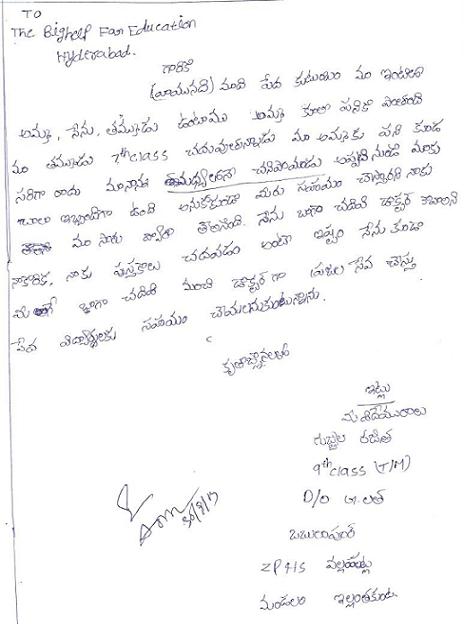 To
The Bighelp For Education
Hyderabad.
గారికి
వ్రాయునది మాది పేద కుటుంబం మా ఇంటిలో
అమ్మ, నేను, తమ్ముడు ఉంటాము అమ్మ కూలి పనికి వెళుతుంది
మా తమ్ముడు 7th class చదువుతున్నాడు మా అమ్మకు పని కూడ
సరిగా రాదు మా నాన్న చనిపోయినాడు అప్పటి నుండి మాకు
చాలా ఇబ్బందిగా ఉంది అనుకోకుండా మీరు సహాయం చేస్తారని నాకు
మా సారు ద్వారా తెలిసింది. నేను బాగా చదివి డాక్టర్ కావాలని
నా కోరిక, నాకు పుస్తకాలు చదవడం అంటే ఇష్టం నేను కూడా
మీలాగే బాగా చదివి మంచి డాక్టర్ గా ప్రజల సేవ చేస్తూ
పేద విద్యార్థులకు సహాయం చేయాలనుకుంటున్నాను.
కృతజ్ఞతలతో
ఇట్లు
మీ విధేయురాలు
గుజ్జుల రజిత
9th class (T/M)
D/o లత
ZPHS వల్లంపట్ల
మండలం ఇల్లంతకుంట